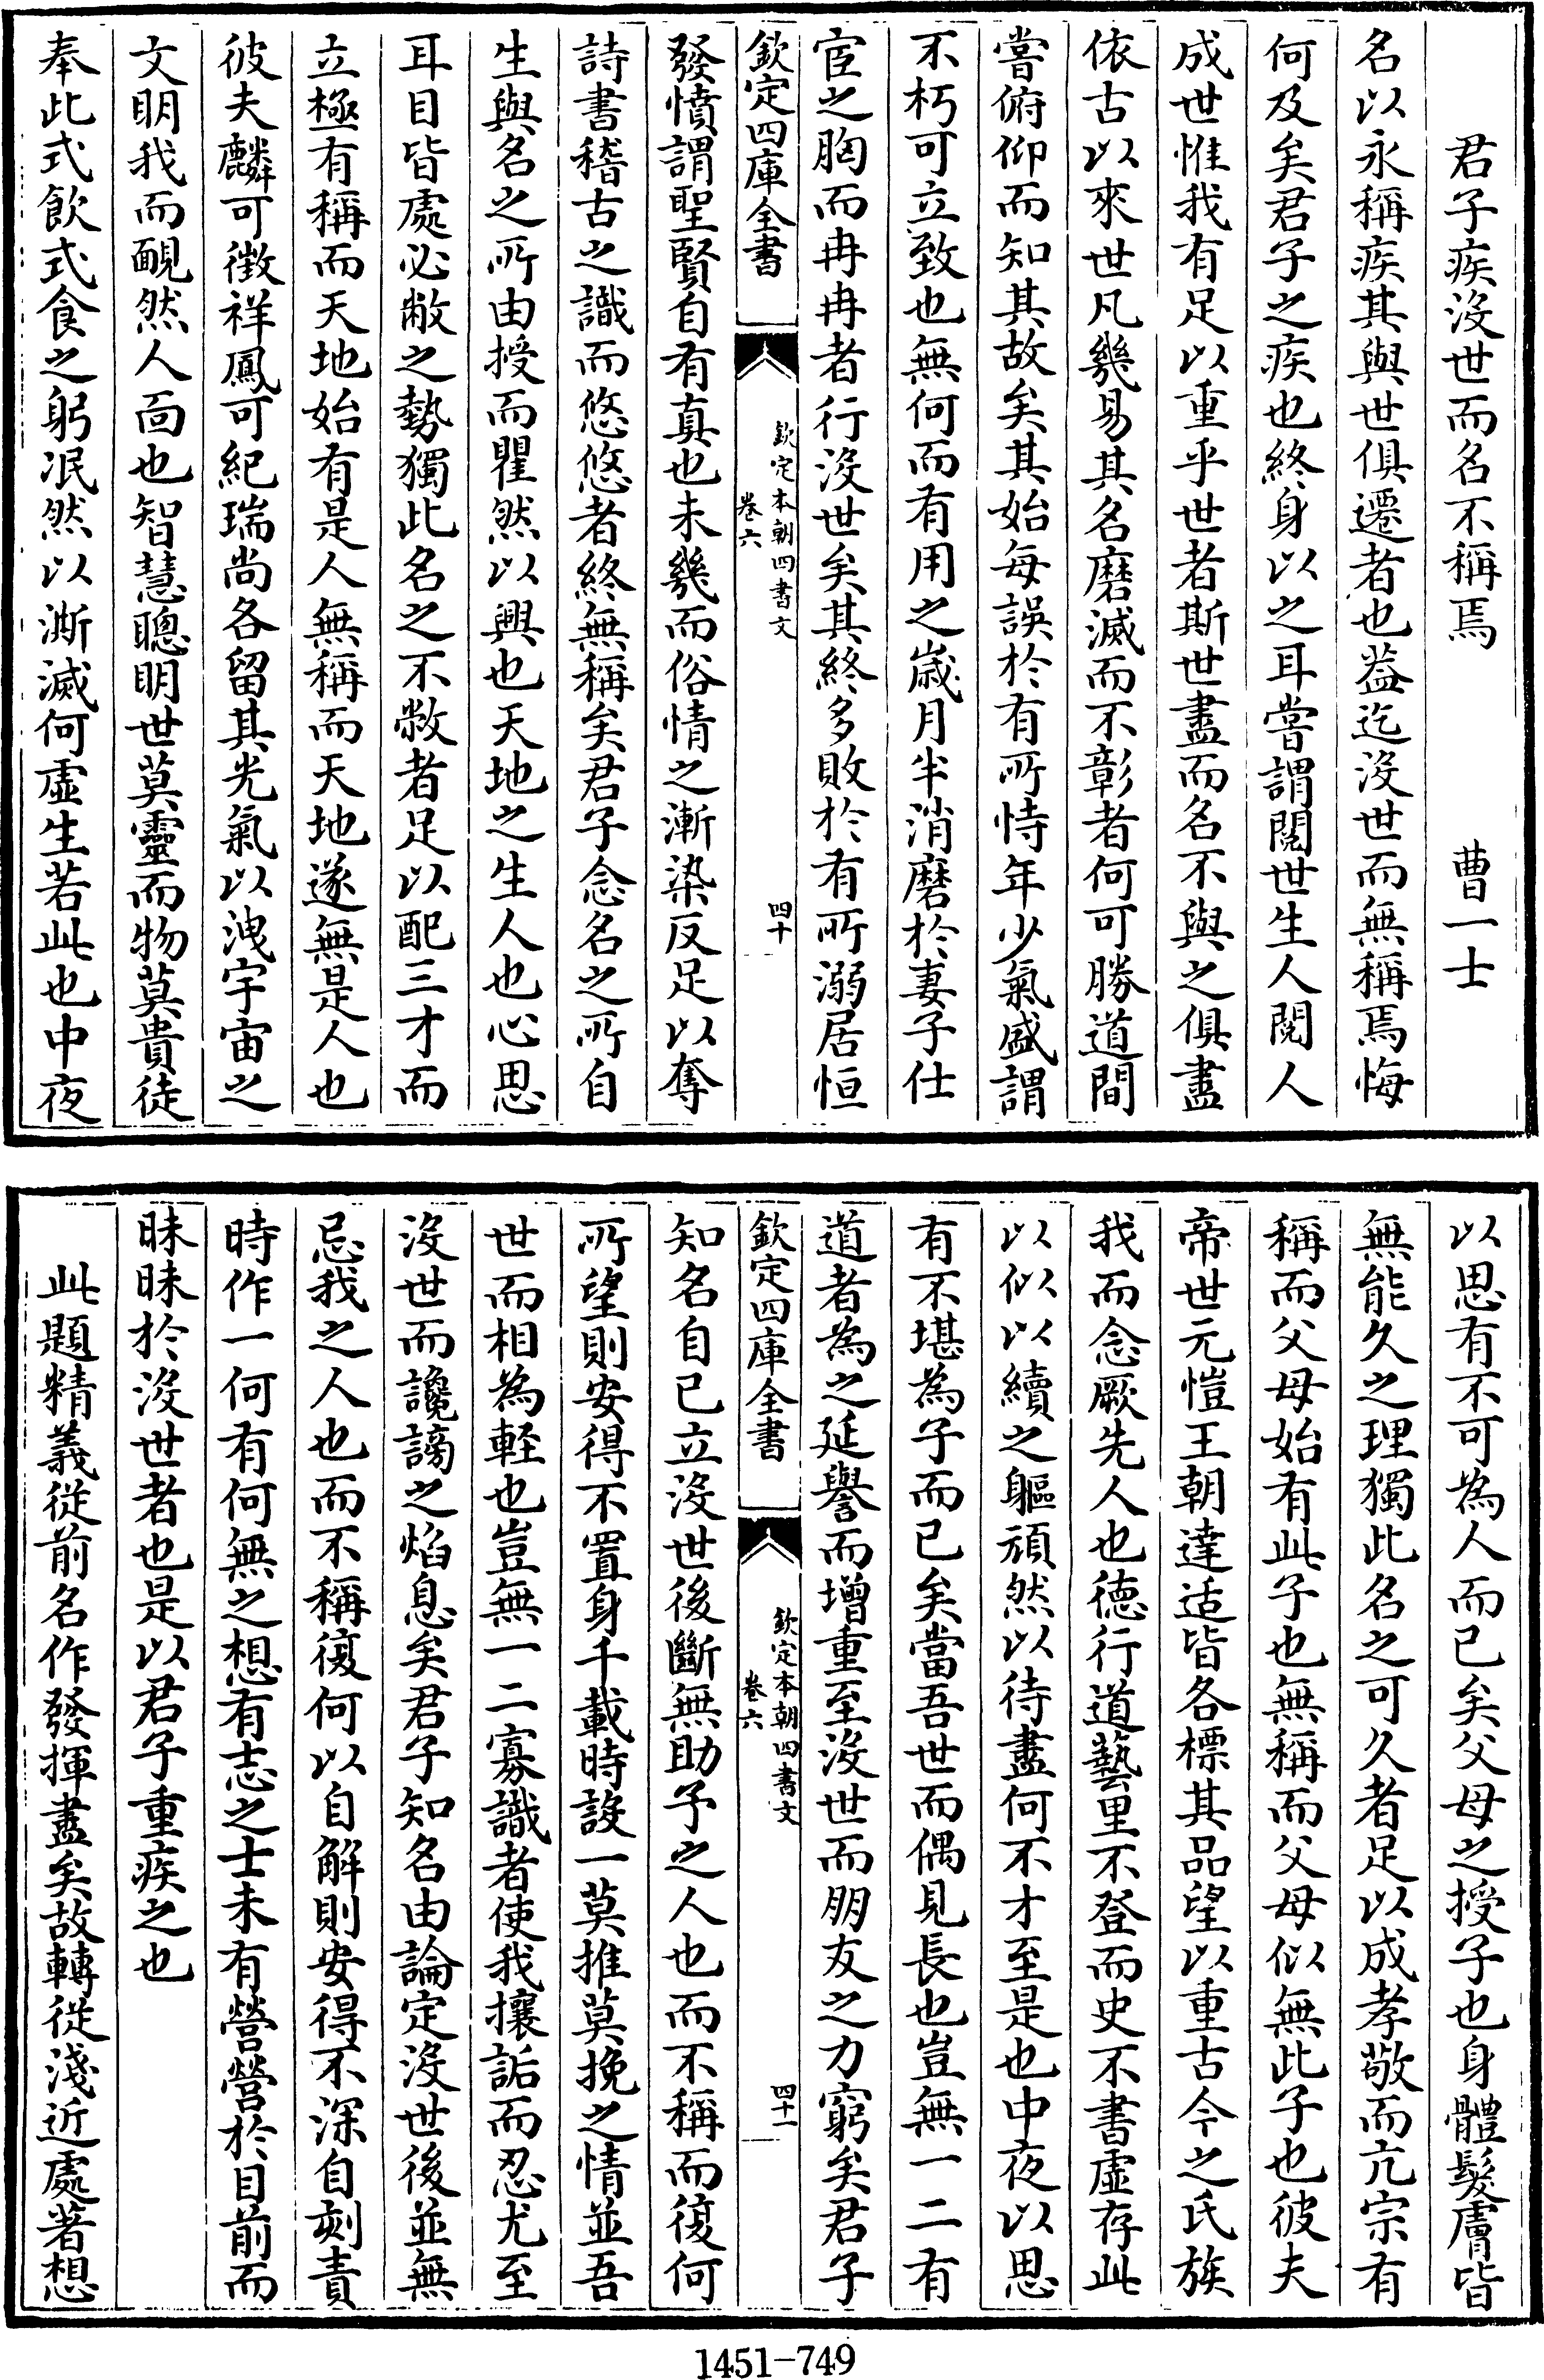 君子疾沒世而名不稱焉　曹一士
名以永稱疾其與世俱遷者也蓋迄沒世而無稱焉悔
何及矣君子之疾也終身以之耳嘗謂閱世生人閱人
成世惟我有足以重乎世者斯世盡而名不與之俱盡
依古以來世凡幾易其名磨滅而不彰者何可勝道間
嘗俯仰而知其故矣其始每誤於有所恃年少氣盛謂
不朽可立致也無何而有用之歲月半消磨於妻子仕
宦之胸而冉冉者行沒世矣其終多敗於有所溺居恒
欽定四庫全書
欽定本朝四書文
卷六
四十
發憤謂聖賢自有真也未幾而俗情之漸染反足以奪
詩書稽古之識而悠悠者終無稱矣君子念名之所自
生與名之所由授而瞿然以興也天地之生人也心思
耳目皆處必敝之勢獨此名之不敝者足以配三才而
立極有稱而天地始有是人無稱而天地遂無是人也
彼夫麟可徵祥鳳可紀瑞尚各留其光氣以洩宇宙之
文明我而靦然人面也智慧聰明世莫靈而物莫貴徒
奉此式飲式食之躬泯然以澌滅何虛生若此也中夜
以思有不可為人而已矣父母之授子也身體髮膚皆
無能久之理獨此名之可久者足以成孝敬而亢宗有
稱而父母始有此子也無稱而父母似無此子也彼夫
帝世元愷王朝達适皆各標其品望以重古今之氏族
我而念厥先人也德行道藝里不登而史不書虛存此
以似以續之軀頑然以待盡何不才至是也中夜以思
有不堪為子而已矣當吾世而偶見長也豈無一二有
道者為之延譽而增重至沒世而朋友之力窮矣君子
欽定四庫全書
欽定本朝四書文
卷六
四十一
知名自已立沒世後斷無助予之人也而不稱而復何
所望則安得不置身千載時設一莫推莫挽之情並吾
世而相為輕也豈無一二寡識者使我攘詬而忍尤至
沒世而讒謗之焰息矣君子知名由論定沒世後並無
忌我之人也而不稱復何以自解則安得不深自刻責
時作一何有何無之想有志之士未有營營於目前而
昧昧於沒世者也是以君子重疾之也
此題精義從前名作發揮盡矣故轉從淺近處著想
1451-749